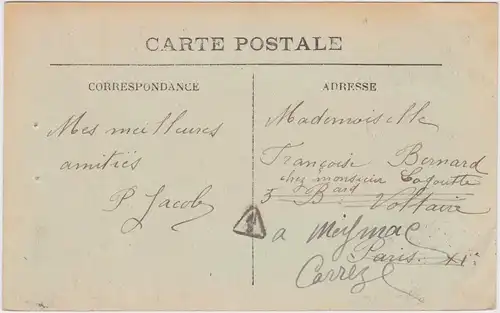 CARTE POSTALE
CORRESPONDANCE
Mes meilleures
amitiés
P. Jacob
ADRESSE
Mademoiselle
Françoise Bernard
chez monsieur
5 Bard Voltaire
a Meymac
Paris XIe
Corrèze